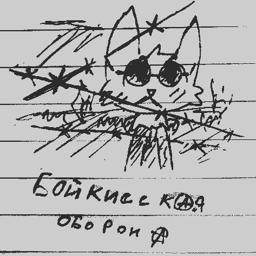 БОЙКИСС КАЯ
ОБОРОНА